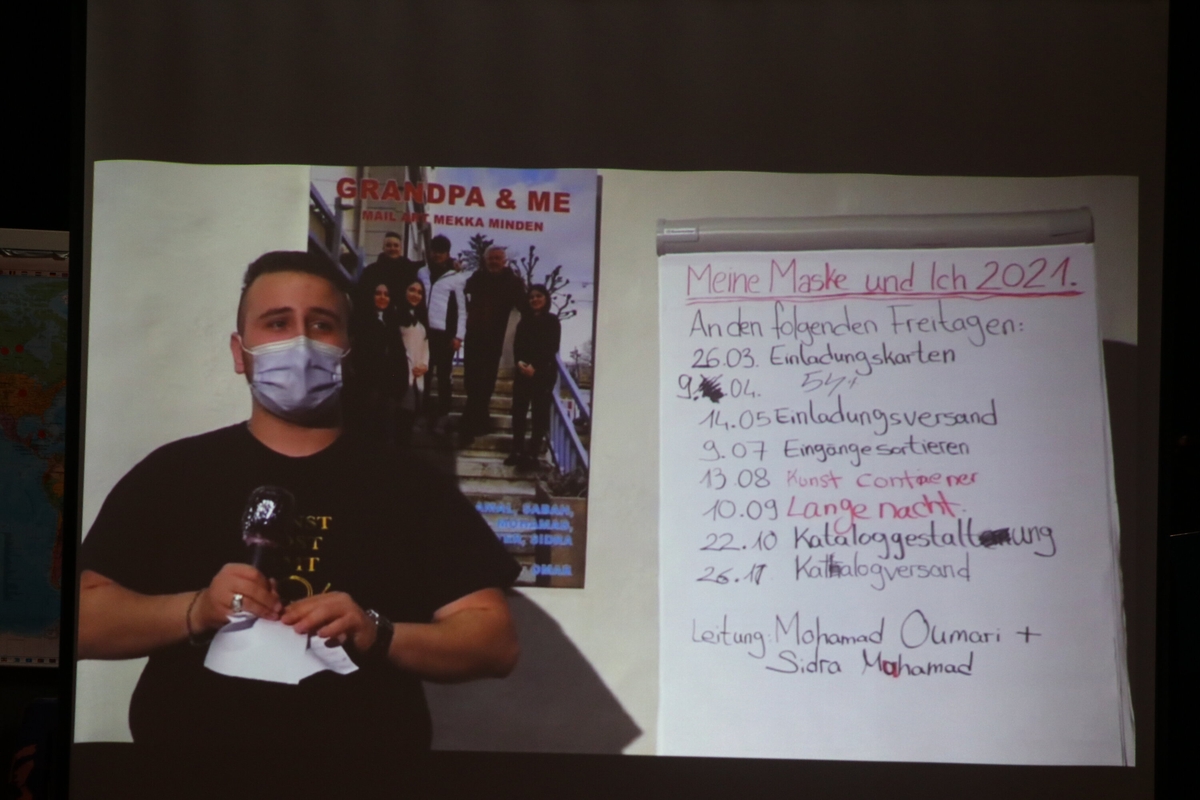 GRANDPA & ME
MAIL ART MEKKA MINDEN
AMAL, SABAH,
MOHAMAD,
SIDRA
OMAR
Meine Maske und Ich 2021.
An den folgenden Freitagen:
26.03. Einladungskarten
9. 04.
14.05 Einladungsversand
9.07 Eingänge sortieren
13.08 Kunst container
10.09 Lange nacht.
22.10 Kataloggestaltung
26.11 Katalogversand
Leitung: Mohamad Oumari +
Sidra Mohamad